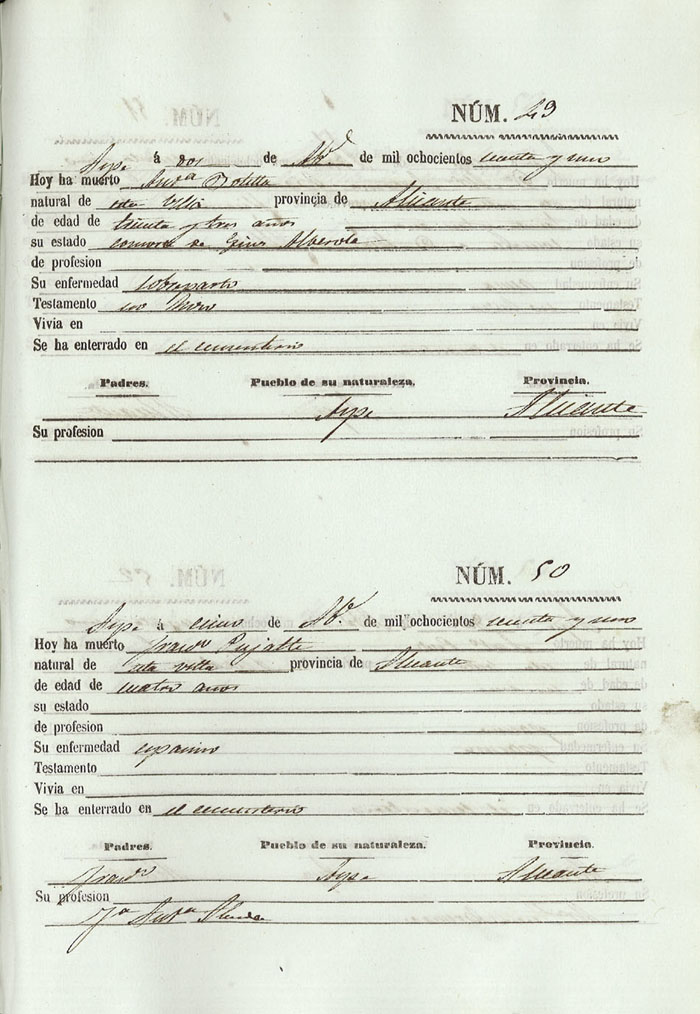 NÚM. 49
Aspe á dos de Abl. de mil ochocientos cuarenta y uno
Hoy ha muerto Antª Botella
natural de esta villa provincia de Alicante
de edad de treinta y tres años
su estado consorte de Gines Alberola
de profesion
Su enfermedad sobreparto
Testamento no hizo
Vivia en
Se ha enterrado en el cementerio
Padres. Pueblo de su naturaleza. Provincia.
Aspe Alicante
Su profesion
NÚM. 50
Aspe á cinco de Abl. de mil ochocientos cuarenta y uno
Hoy ha muerto Franco Pujalte
natural de esta villa provincia de Alicante
de edad de cuatro años
su estado
de profesion
Su enfermedad espasmo
Testamento
Vivia en
Se ha enterrado en el cementerio
Padres. Pueblo de su naturaleza. Provincia.
Franco Aspe Alicante
Su profesion
Antª